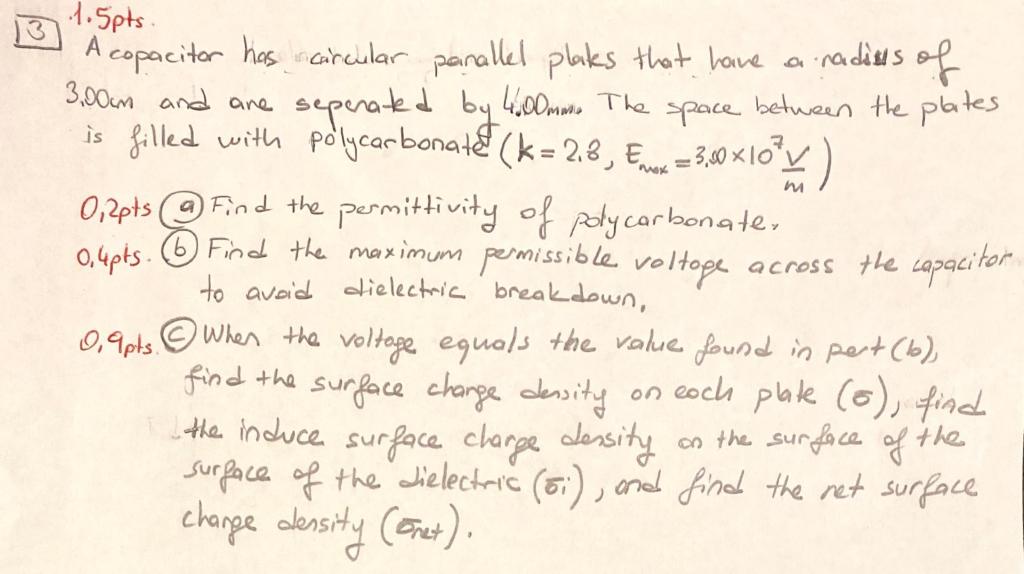 1.5pts.
3 A capacitor has circular parallel plates that have a radius of
3,00cm and are seperated by 4,00mm. The space between the plates
is filled with polycarbonate (k = 2.8, Emax = 3,00×10⁷ V/m)
0,2pts (a) Find the permittivity of polycarbonate.
0,4pts. (b) Find the maximum permissible voltage across the capacitor
to avoid dielectric breakdown,
0,9pts. (c) When the voltage equals the value found in part (b),
find the surface charge density on each plate (σ), find
the induce surface charge density on the surface of the
surface of the dielectric (σi), and find the net surface
charge density (σnet).